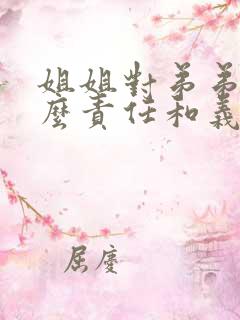 姐姐對弟弟
麼責任和義
屈慶